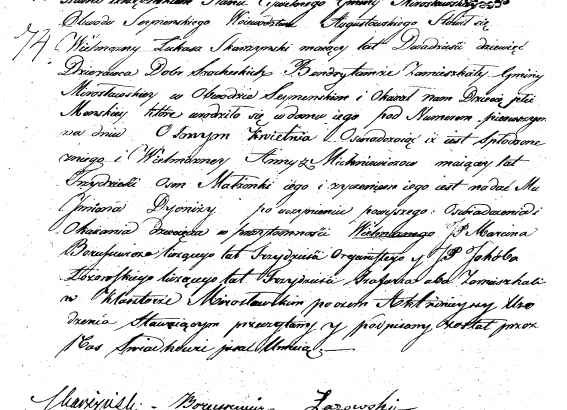 Urzędnikiem Stanu Cywilnego Gminy Mirosławskiey
Obwodu Seynenskiego Województwa Augustowskiego Stawił się
74
Wielmożny Łukasz Skarzynski maiący lat Dwadzieścia dziewięć
Dzierżawca Dobr w Bendrytamze Zamieszkały Gminy
Mirosławskiey w Obwodzie Seynenskim i Okazał nam Dziecię płci
Męzkiey które urodziło się w domu iego pod Numerem pierwszym
na dniu Osmym Kwietnia Oswiadczaiąc iż iest Spłodzone
z niego i Wielmożney Anny z Michniewiczow maiącey lat
Trzydzieści osm Małżonki iego i życzeniem iego iest nadać Mu
Jmiona Dyonizy po uczynieniu powyższego oswiadczenia i
Okazania dziecięcia w przytomności Wielmożnego JP Marcina
liczącego lat Trzydzieści Organistego y JP Jakóba
Łozowskiego liczącego lat Trzydzieści oba Zamieszkali
w Klasztorze Mirosławskim poczem Akt ninieyszy Uro
dzenia Stawaiącym przeczytany y podpisany został przez
Nas Swiadkowie pisać Umieią
Skarzynski Łazowski